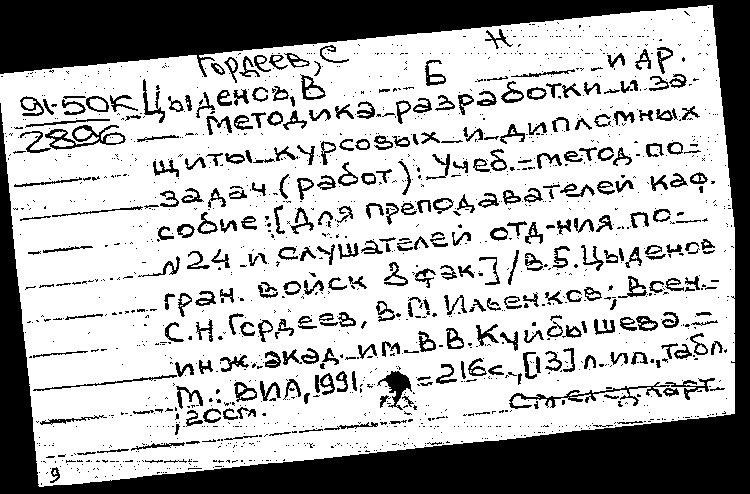 Гордеев, С Н
91-50К Цыденов, В Б и др.
2896 Методика разработки и за-
щиты курсовых и дипломных
задач (работ): Учеб.-метод. по-
собие: [Для преподавателей каф.
N24 и слушателей отд-ния по-
гран. войск 8 фак.] / В.Б. Цыденов
С.Н. Гордеев, В.П. Ильенков; Воен.-
инж. акад. им. В.В. Куйбышева. -
М.: ВИА, 1991 = 216с., [13] л. ил., табл.
; 20см. См. след. карт
9